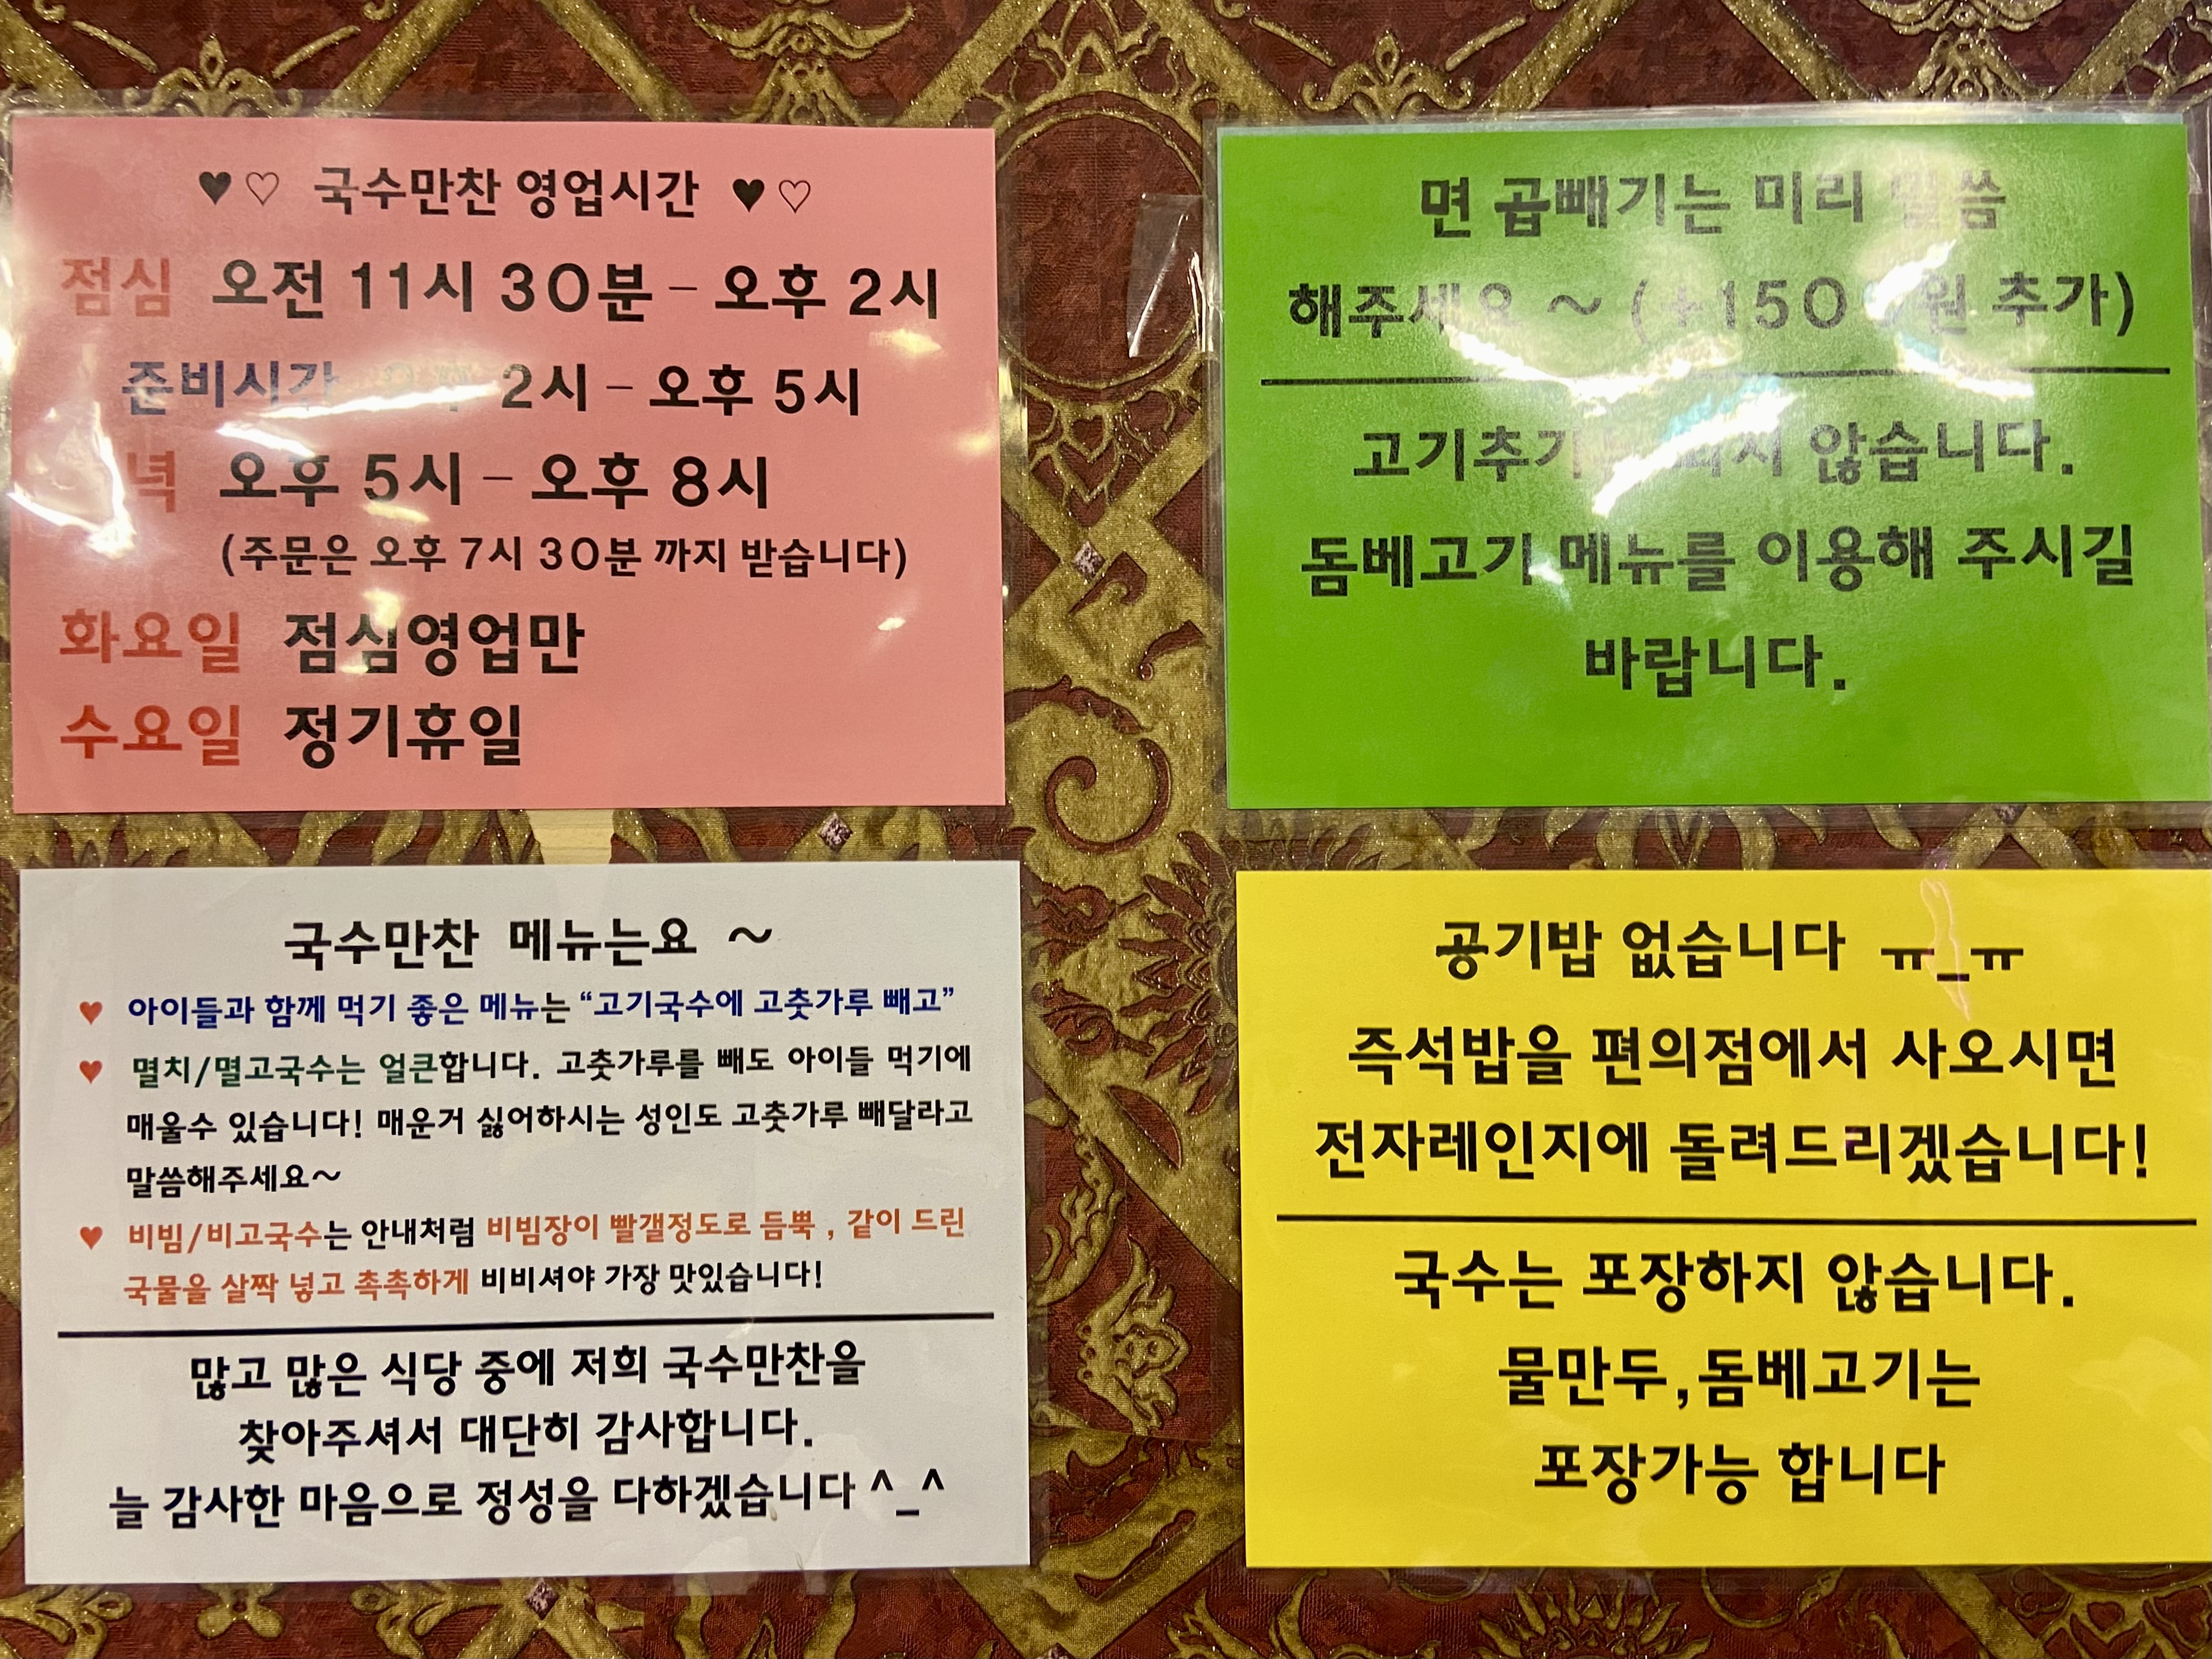 ♥♡ 국수만찬 영업시간 ♥♡
점심 오전 11시 30분 - 오후 2시
준비시간 2시 - 오후 5시
오후 5시 - 오후 8시
(주문은 오후 7시 30분 까지 받습니다)
화요일 점심영업만
수요일 정기휴일
면 곱빼기는 미리 말씀
해주세요 ~ (+1500원 추가)
고기추가는 않습니다.
돔베고기 메뉴를 이용해 주시길
바랍니다.
국수만찬 메뉴는요 ~
♥ 아이들과 함께 먹기 좋은 메뉴는 “고기국수에 고춧가루 빼고”
♥ 멸치/멸고국수는 얼큰합니다. 고춧가루를 빼도 아이들 먹기에
매울수 있습니다! 매운거 싫어하시는 성인도 고춧가루 빼달라고
말씀해주세요~
♥ 비빔/비고국수는 안내처럼 비빔장이 빨갤정도로 듬뿍 , 같이 드린
국물을 살짝 넣고 촉촉하게 비비셔야 가장 맛있습니다!
많고 많은 식당 중에 저희 국수만찬을
찾아주셔서 대단히 감사합니다.
늘 감사한 마음으로 정성을 다하겠습니다 ^_^
공기밥 없습니다 ㅠ_ㅠ
즉석밥을 편의점에서 사오시면
전자레인지에 돌려드리겠습니다!
국수는 포장하지 않습니다.
물만두,돔베고기는
포장가능 합니다